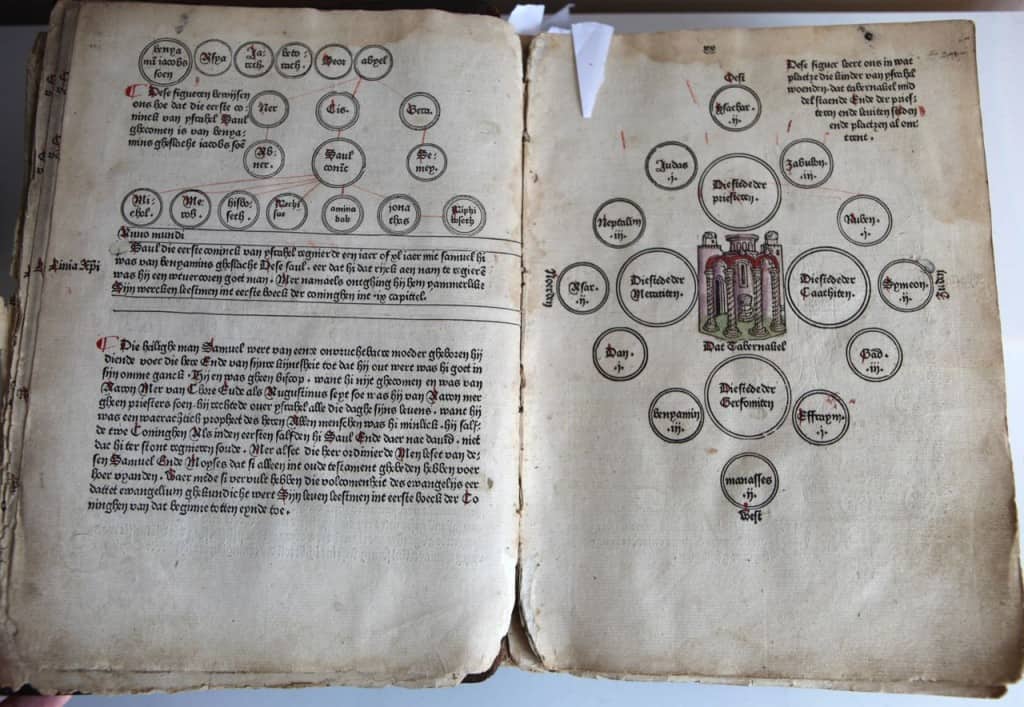 benya
mīs iacobs
soen
Asya
Ja:
reth.
beto
rath.
Seor
abyel
Dese figueren bewijsen
ons hoe dat die eerste co-
ninck van ysrahel Saul
ghecomen is van benya-
mins gheslachte iacobs soē
Ner
Cis.
Gera.
Ab:
ner.
Saul
conīc
Se:
mey.
Mi:
chol.
Me:
rob.
hisbo
seth.
Melchi
sue
amina
dab
iona
thas
Miphi
boseth
Anno mundi
Linia Xpi
Saul die eerste coninck van ysrahel regnierde .xx. iaer of .xl. iaer mit samuel hi
was van benyamins gheslachte Dese saul. eer dat hi dat rijck aen nam te regierē
was hij een wtuercoren goet man. Mer namaels ontghing hij hem yammerlick
Sijn wercken leestmen int eerste boeck der coninghen int .ix. capittel.
Die heilighe man Samuel wert van eenre onvruchebarre moeder gheboren hij
diende voer die here Ende van sijnre kijntsheit toe dat hij out were was hi goet in
sijn omme ganck. Hij en was gheen biscop. want hi nyet ghecomen en was van
Aaron Mer van Chore Ende als Augustinus seyt soe was hij van Aaron mer
gheen priesters soen. hij rechtede over ysrahel alle die daghe sijns levens. want hij
was een waerachtich propheet des heren Allen menschen was hi minlick. hij salf-
de twe Coninghen Als inden eersten salfden hi Saul Ende daer nae david. niet
dat hi ter stont regnieren soude. Mer alset die heer ordinierde Men leset van de-
sen Samuel Ende Moyses dat si alleen int oude testament ghebeden hebben voer
hoer vyanden. Waer mede si vervult hebben die volcomenheit des ewangelijs eer
dattet ewangelium ghekundicht wert Sijn leven leestmen int eerste boeck der Co
ninghen van dat beghinne totten eynde toe.
xv
Dese figuer leert ons in wat
plaetze die kinder van ysrahel
woenden. dat tabernakel mid
del staende Ende der pries-
teren ende leuiten
ende plaetzen al om
trent.
Oest
ysachar.
.ij.
Judas
.i.
Zabulon.
.iij.
Die stede der
priesteren.
Neptalim
.iij.
Ruben.
.i.
Noerden
Asar.
.ij.
Die stede der
Merariten
Die stede der
Caathiten.
Symeon.
.ij.
Zudē
Dat Tabernakel
Dan.
.i.
Gad.
.iij.
Die stede der
Gersoniten
benyamin
.iij.
Effraym.
.i.
manasses
.ij.
West